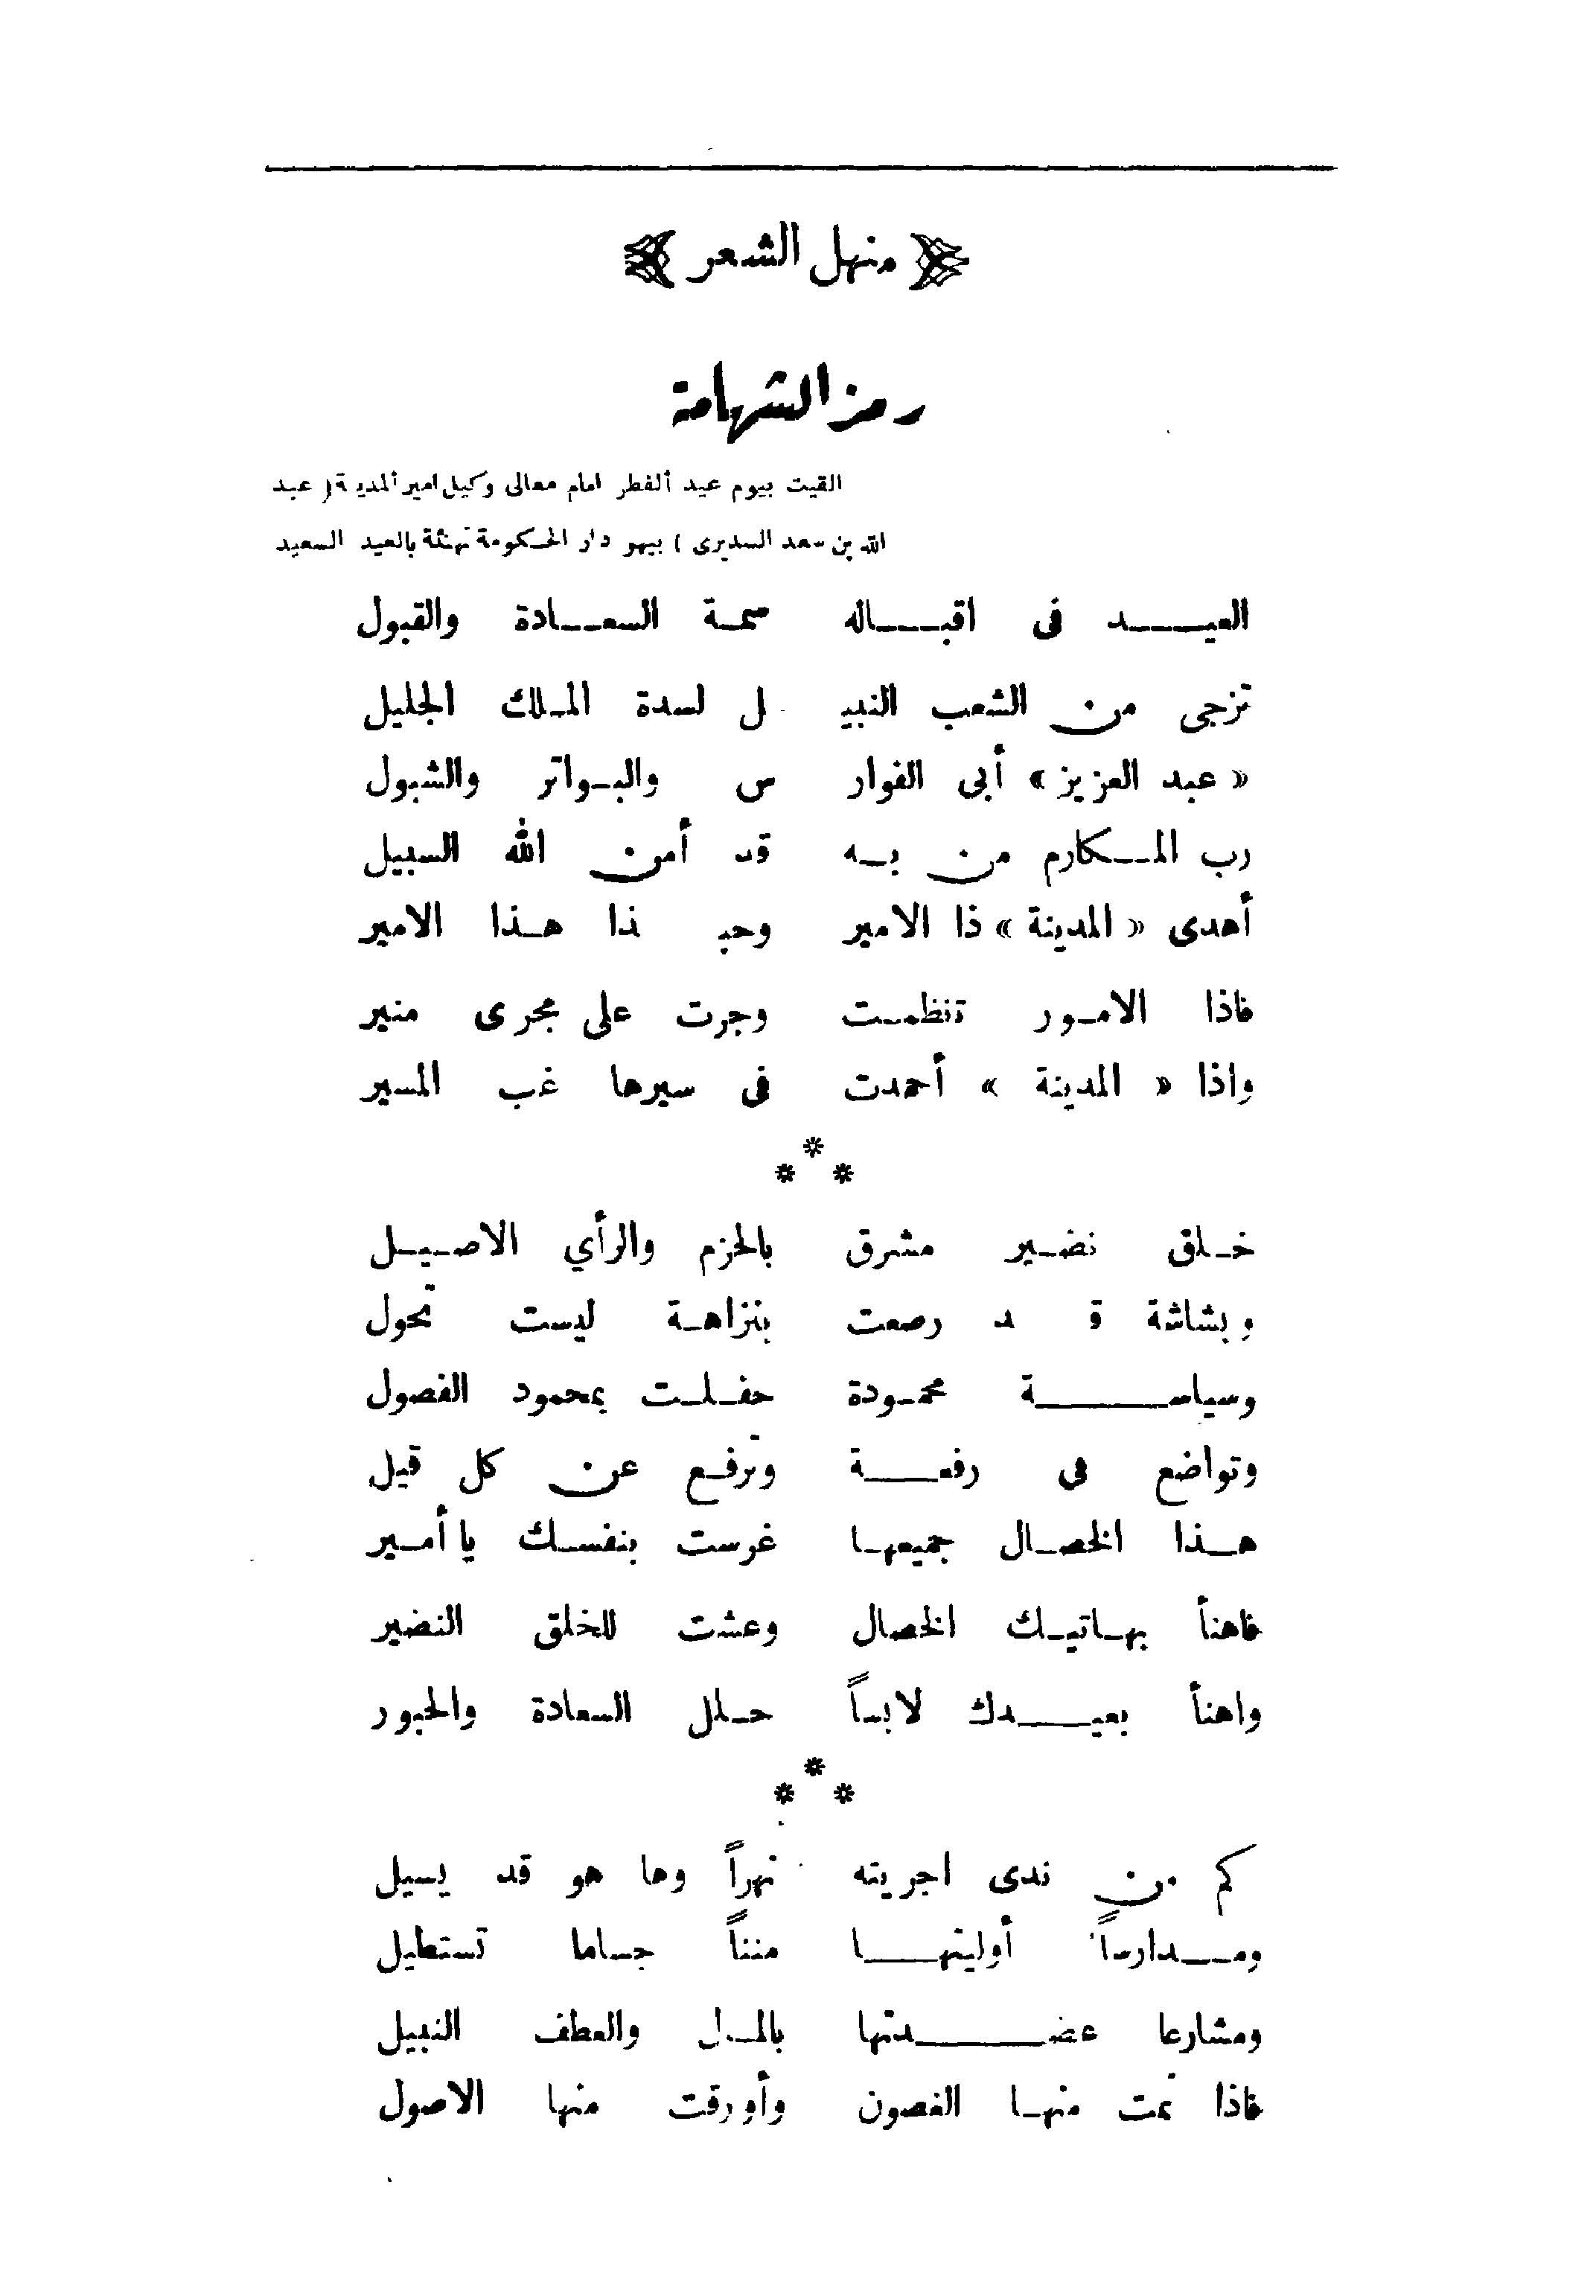 منهل الشعر
رمز الشهامة
القيت بيوم عيد الفطر امام معالى وكيل امير المدينة ( عبد
الله بن سعد السديرى ) ببهو دار الحكومة تهنئة بالعيد السعيد
العيد فى اقباله سمة السعادة والقبول
تزجى من الشعب النبيـ ل لسدة الملك الجليل
« عبد العزيز » أبى الفوار س والبواتر والشبول
رب المكارم من به قد أمن الله السبيل
أهدى « المدينة » ذا الامير وحبـ ذا هذا الامير
فاذا الامور تنظمت وجرت على مجرى منير
واذا « المدينة » أحمدت فى سيرها غب المسير
***
خلق نضير مشرق بالحزم والرأي الاصيل
وبشاشة قد رصعت بنزاهة ليست تحول
وسياسة محمودة حفلت بمحمود الفصول
وتواضع فى رفعة وترفع عن كل قيل
هذا الخصال جميعها غرست بنفسك يا أمير
فاهنأ بهاتيك الخصال وعشت للخلق النضير
واهنأ بعيدك لابساً حلل السعادة والحبور
***
كم من ندى اجريته نهراً وها هو قد يسيل
ومدارساً أوليتها مننأً جساما تستطيل
ومشارعا عضدتها بالمال والعطف النبيل
فاذا نمت منها الغصون وأورقت منها الاصول